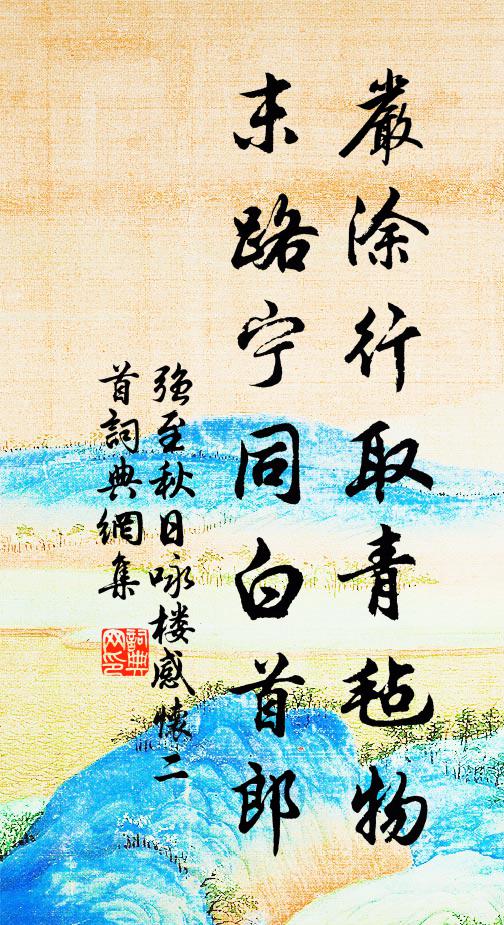 嚴涂行取青毡物
末路宁同白首郎
强至秋日咏楼感懷二
首詞典網集
詞典
网印